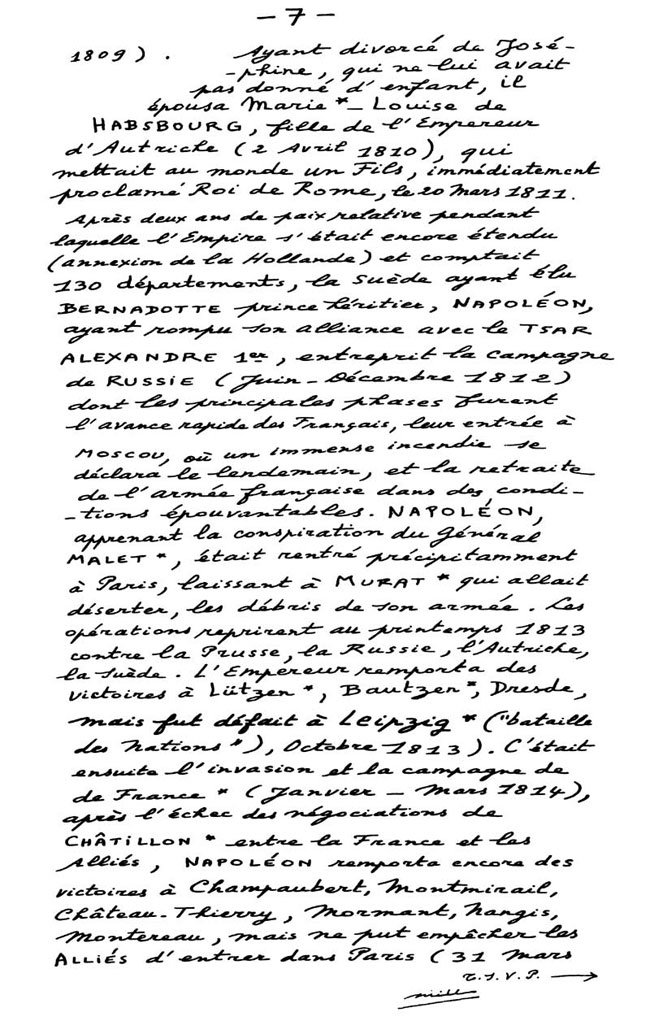 - 7 -
1809) . Ayant divorcé de José-
-phine, qui ne lui avait
pas donné d'enfant, il
épousa Marie*-Louise de
HABSBOURG, fille de l'Empereur
d'Autriche (2 Avril 1810), qui
mettait au monde un Fils, immédiatement
proclamé Roi de Rome, le 20 Mars 1811.
Après deux ans de paix relative pendant
laquelle l'Empire s'était encore étendu
(annexion de la Hollande) et comptait
130 départements, la Suède ayant élu
BERNADOTTE prince héritier, NAPOLÉON,
ayant rompu son alliance avec le TSAR
ALEXANDRE 1er, entreprit la Campagne
de RUSSIE (Juin - Décembre 1812)
dont les principales phases furent
l'avance rapide des Français, leur entrée à
MOSCOU, où un immense incendie se
déclara le lendemain, et la retraite
de l'armée française dans des condi-
-tions épouvantables. NAPOLÉON,
apprenant la conspiration du Général
MALET*, était rentré précipitamment
à Paris, laissant à MURAT* qui allait
déserter, les débris de son armée. Les
opérations reprirent au printemps 1813
contre la Prusse, la Russie, l'Autriche,
la Suède. L'Empereur remporta des
victoires à Lützen*, Bautzen*, Dresde,
mais fut défait à Leipzig* ("bataille
des Nations"), Octobre 1813). C'était
ensuite l'invasion et la campagne de
de France* (Janvier - Mars 1814),
après l'échec des négociations de
CHÂTILLON* entre la France et les
Alliés, NAPOLÉON remporta encore des
victoires à Champaubert, Montmirail,
Château-Thierry, Mormant, Nangis,
Montereau, mais ne put empêcher les
ALLIÉS d'entrer dans Paris (31 Mars
T.S.V.P. →